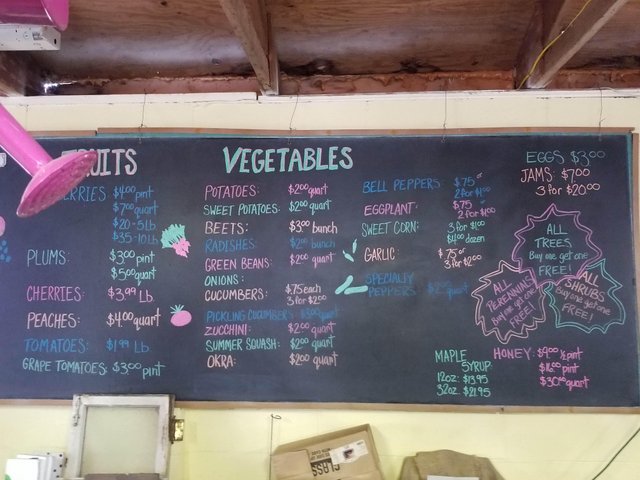 FRUITS
ERRIES $4.00 pint
$7.00 quart
$20-5 Lb
$35-10 Lb
PLUMS: $3.00 pint
$5.00 quart
CHERRIES: $3.99 Lb
PEACHES: $4.00 quart
TOMATOES: $1.99 Lb
GRAPE TOMATOES: $3.00 pint
VEGETABLES
POTATOES: $2.00 quart
SWEET POTATOES: $2.00 quart
BEETS: $3.00 bunch
RADISHES: $2.00 bunch
GREEN BEANS: $2.00 quart
ONIONS:
CUCUMBERS: $.75 each
3 for $2.00
PICKLING CUCUMBERS: quart
ZUCCHINI: $2.00 quart
SUMMER SQUASH: $2.00 quart
OKRA: $2.00 quart
BELL PEPPERS: $.75
2 for $1.00
EGGPLANT: $.75
2 for $1.00
SWEET CORN: 3 for $1.00
$4.00 dozen
GARLIC $.75 or
3 for $2.00
SPECIALTY
PEPPERS: quart
EGGS $3.00
JAMS: $7.00
3 for $20.00
ALL
TREES
Buy one get one
FREE!
ALL
PERENNIALS
Buy one get one
FREE!
ALL
SHRUBS
Buy one get one
FREE!
MAPLE
SYRUP:
12oz: $13.95
32oz: $21.95
HONEY: $9.00 ½ pint
$16.00 pint
$30.00 quart
GLASS